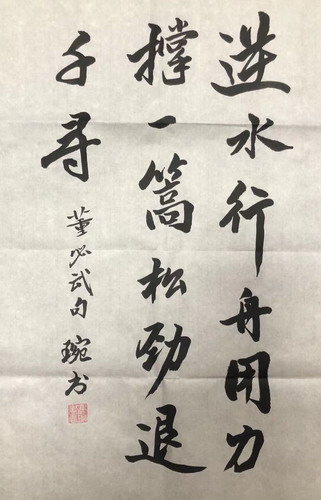 逆水行舟用力
撑一篙松劲退
千寻
董必武句 琬书